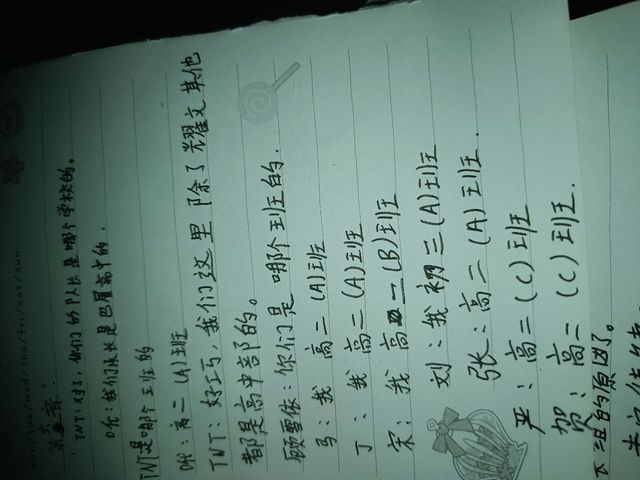 mon/tue/wed/thu/fri/sat/sun
第六章:
TNT:对了,你们的队长是哪个学校的。
:我们队长是巴蜀高中的.
TNT是哪个王班的
:高二(A)班
TNT:好巧,我们这里除了耀文其他
都是高中部的。
顾雪依:你们是 哪个班的.
马:我 高二(A)班
丁:我高二(A)班
宋:我高一(B)班
刘:我初三(A)班
张:高二(A)班.
严:高二(C)班
贺:高二(C)班.
不 组的原因了。